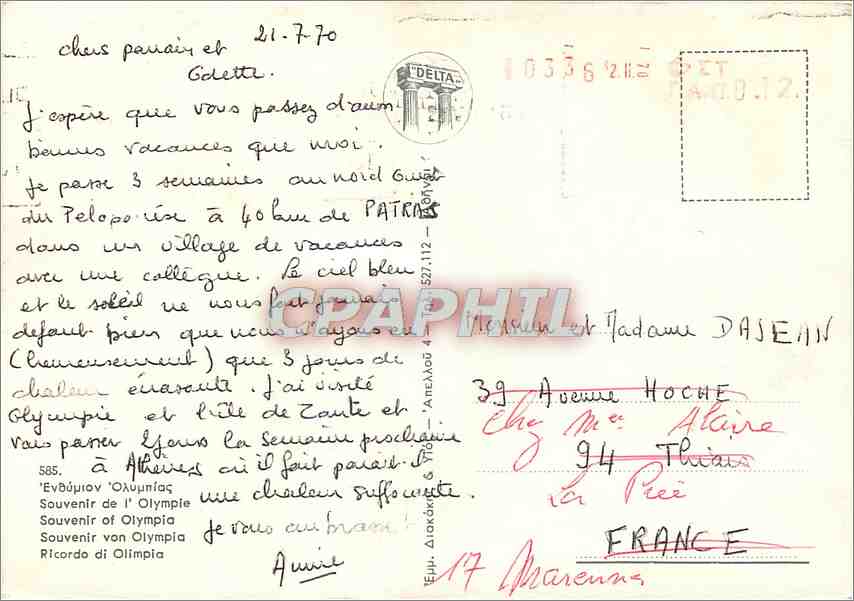 21-7-70
chers parrain et
Odette.
J'espère que vous passez d'aussi
bonnes vacances que moi.
Je passe 3 semaines au nord Ouest
du Péloponèse à 40 km de PATRAS
dans un village de vacances
avec une collègue. Le ciel bleu
et le soleil ne nous font jamais
défaut bien que nous n'ayons eu
(heureusement) que 3 jours de
chaleur écrasante. J'ai visité
Olympie et l'île de Zante et
vais passer 2 jours la semaine prochaine
à Athènes où il fait parait-il
une chaleur suffocante.
Je vous embrasse
Annie
585.
Ἐνθύμιον Ὀλυμπίας
Souvenir de l' Olympie
Souvenir of Olympia
Souvenir von Olympia
Ricordo di Olimpia
"DELTA"
Ἐμμ. Διακάκη & Υἱοῦ — Ἀπελλοῦ 4 — Τηλ. 527.112 — Ἀθῆναι
0336
CPAPHIL
Monsieur et Madame DAJEAN
39 Avenue HOCHE
Chez Me
94 Thiais
La Prée
FRANCE
17 Marennes